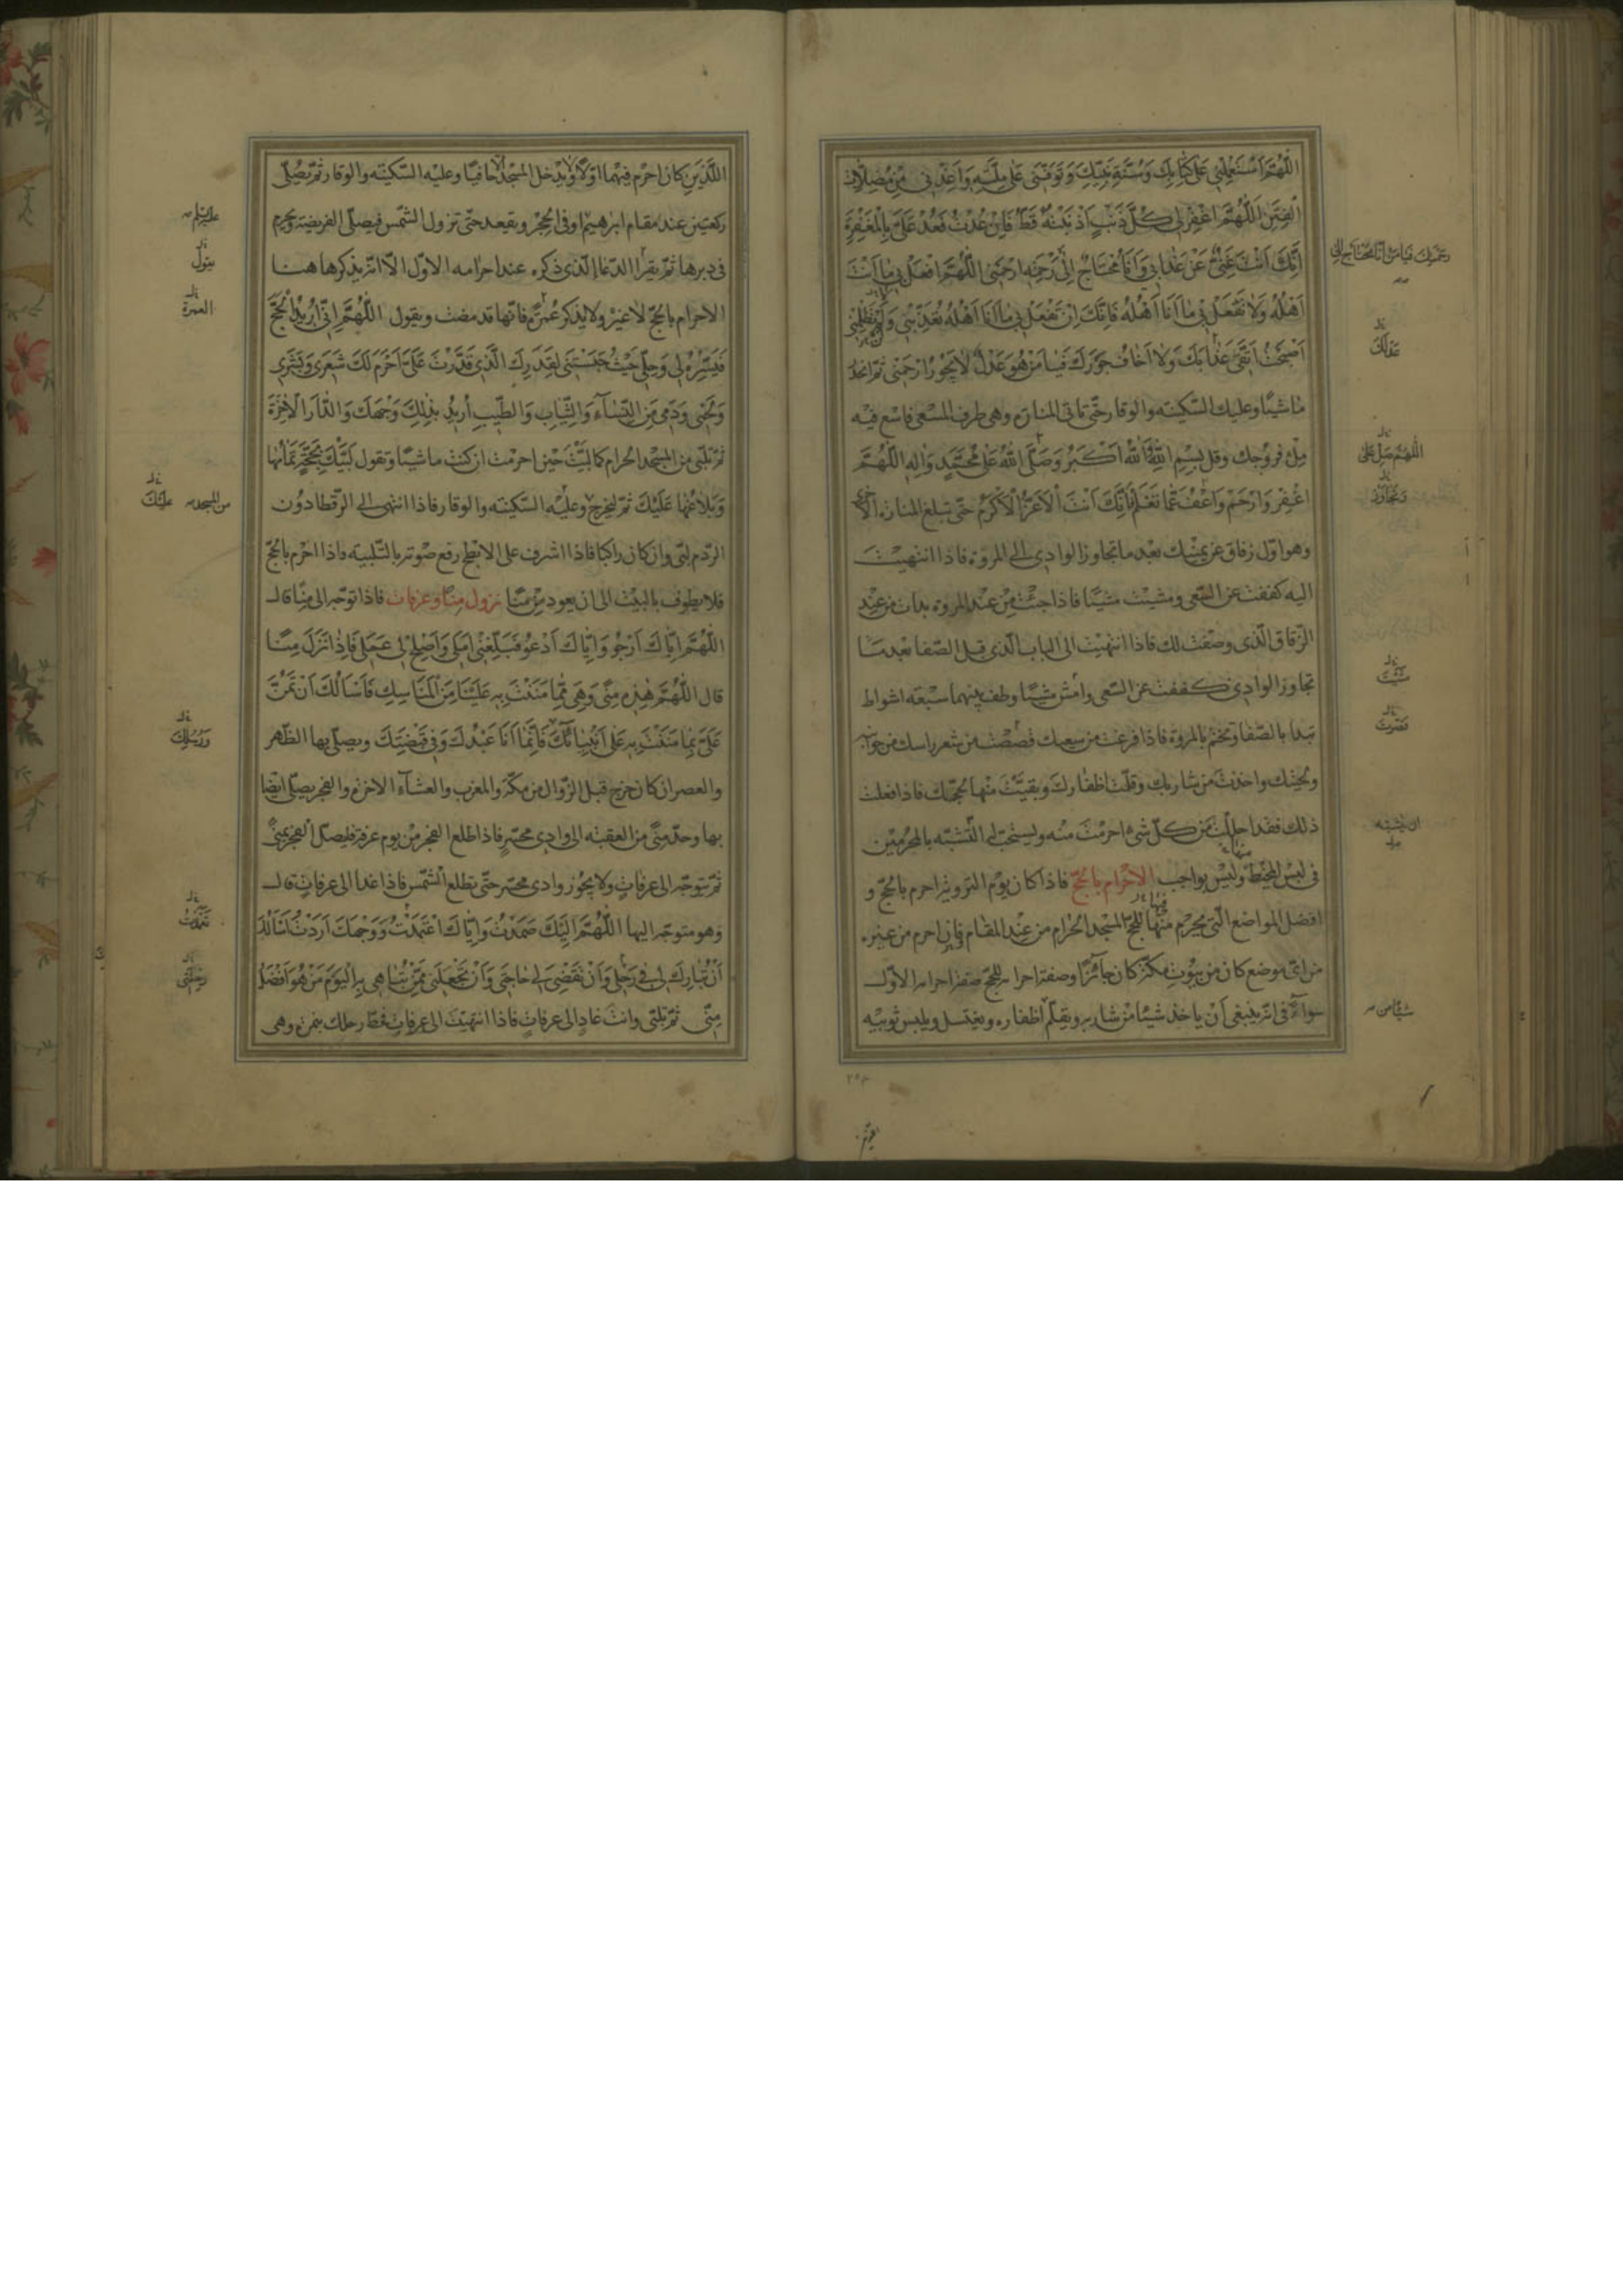 اللّهُمَّ اسْتَعْمِلْنِي عَلَى كِتَابِكَ وَسُنَّةِ نَبِيِّكَ وَتَوَفَّنِي عَلَى مِلَّتِهِ وَاَعِذْنِي مِنْ مُضِلَّاتِ
الْفِتَنِ اَللّهُمَّ اغْفِرْ لِي كُلَّ ذَنْبٍ اَذْنَبْتُهُ قَطُّ فَاِنْ عُدْتُ فَعُدْ عَلَيَّ بِالْمَغْفِرَةِ
اِنَّكَ اَنْتَ غَنِيٌّ عَنْ عَذَابِي وَاَنَا مُحْتَاجٌ اِلَى رَحْمَتِكَ ارْحَمْنِي اللّهُمَّ افْعَلْ بِي مَا اَنْتَ
اَهْلُهُ وَلَا تَفْعَلْ بِي مَا اَنَا اَهْلُهُ فَاِنَّكَ اِنْ تَفْعَلْ بِي مَا اَنَا اَهْلُهُ تُعَذِّبْنِي وَلَمْ تَظْلِمْنِي
اَصْبَحْتُ اَتَّقِي عَذَابَكَ وَلَا اَخَافُ جَوْرَكَ فَيَا مَنْ هُوَ عَدْلٌ لَا يَجُورُ ارْحَمْنِي ثم انحدر
ماشيًا وعليك السّكينه والوقار حتّى تاتى المنارة وهى طرف المسعى فاسع فيه
مِلْ فروجك وقل بِسْمِ اللّهِ اَللّهُ اَكْبَرُ وَصَلَّى اللّهُ عَلَى مُحَمَّدٍ وَالِهِ اللّهُمَّ
اغْفِرْ وَارْحَمْ وَاعْفُ عَمَّا تَعْلَمُ فَاِنَّكَ اَنْتَ الْاَعَزُّ الْاَكْرَمُ حتّى تبلغ المنارة الاخرى
وهو اوّل زقاق عن يمينك بعد ما تجاوز الوادى الى المروة فاذا انتهيت
اليه كففت عن السّعى ومشيت مشيًا فاذا جئت من عند المروة بدات من عند
الزّقاق الّذى وصفت لك فاذا انتهيت الى الباب الّذى قبل الصّفا بعد ما
تجاوز الوادى كففت عن السّعى وامش مشيًا وطف بينهما سبعة اشواط
تبدا بالصّفا وتختم بالمروة فاذا فرغت من سعيك قصصت من شعر راسك من جوانبه
ولحيتك واخذت من شاربك وقلّمت اظفارك وبقيّت منها لحجّك فاذا فعلت
ذلك فقد احللت من كلّ شىء احرمت منه ويستحبّ له التّشبّه بالمحرمين
فى لبس المخيط وليس بواجب الاحرام بالحجّ فاذا كان يوم التروية احرم بالحجّ و
افضل المواضع الّتى يحرم منها للحجّ المسجد الحرام من عند المقام فان احرم من غيره
من اىّ موضع كان من بيوت مكّة كان جائزًا وصفة احرامه للحجّ صفة احرامه الاوّل
سواءً فى انّه ينبغى ان ياخذ شيئًا من شاربه ويقلّم اظفاره ويغتسل ويلبس ثوبيه
عَدْلَكَ
اللّهُمَّ صَلِّ عَلَى
وَتَجَاوَزْ
مشيت
قصّرت
ان يتشبّه
شيئًا من
اللّذين كان احرم فيهما اوّلًا ولا يدخل المسجد الّا حافيًا وعليه السّكينه والوقار ثمّ يصلّى
ركعتين عند مقام ابراهيم او فى الحجر ويقعد حتّى تزول الشّمس فيصلّى الفريضة ويحرم
فى دبرها ثمّ يقرا الدّعا الّذى ذكره عند احرامه الاوّل الّا انّه يذكرها هنا
الاحرام بالحجّ لا غير ولا يذكر عمرة فانّها قد مضت ويقول اللّهُمَّ اِنِّي اُرِيدُ الْحَجَّ
فَيَسِّرْهُ لِي وَحُلَّنِي حَيْثُ حَبَسْتَنِي لِقَدَرِكَ الَّذِي قَدَّرْتَ عَلَيَّ اَحْرَمَ لَكَ شَعَرِي وَبَشَرِي
وَلَحْمِي وَدَمِي مِنَ النِّسَاءِ وَالثِّيَابِ وَالطِّيبِ اُرِيدُ بِذلِكَ وَجْهَكَ وَالدَّارَ الْاخِرَةَ
ثمّ تلبّى من المسجد الحرام كما لبّيت حين احرمت ان كنت ماشيًا وتقول لَبَّيْكَ بِحَجَّةٍ تَمَامُهَا
وَبَلَاغُهَا عَلَيْكَ ثمّ ليخرج وعليه السّكينه والوقار فاذا انتهى الى الرّقطا دون
الردم لبّى وان كان راكبا فاذا اشرف على الابطح رفع صوته بالتّلبيته فاذا احرم بالحجّ
فلا يطوف بالبيت الى ان يعود من منا نزول منا وعرفات فاذا توجّه الى منا قال
اللّهُمَّ اِيَّاكَ اَرْجُو وَاِيَّاكَ اَدْعُو فَبَلِّغْنِي اَمَلِي وَاَصْلِحْ لِي عَمَلِي فَاِذَا نَزَلَ مِنًا
قال اللّهُمَّ هذِهِ مِنًى وَهِيَ مِمَّا مَنَنْتَ بِهِ عَلَيْنَا مِنَ الْمَنَاسِكِ فَاَسْاَلُكَ اَنْ تَمُنَّ
عَلَيَّ بِمَا مَنَنْتَ بِهِ عَلَى اَنْبِيَائِكَ فَاِنَّمَا اَنَا عَبْدُكَ وَفِي قَبْضَتِكَ ويصلّى بها الظّهر
والعصر ان كان خرج قبل الزّوال من مكّة والمغرب والعشاء الاخرة والفجر يصلّى ايضا
بها وحدّ منًى من العقبة الى وادى محسّر فاذا طلع الفجر من يوم عرفة فليصلّ الفجر بمنًى
ثمّ يتوجّه الى عرفات ولا يجوز وادى محسّر حتّى يطلع الشّمس فاذا غدا الى عرفات قال
وهو متوجّه اليها اللّهُمَّ اِلَيْكَ صَمَدْتُ وَاِيَّاكَ اعْتَمَدْتُ وَوَجْهَكَ اَرَدْتُ اَسْاَلُكَ
اَنْ تُبَارِكَ لِي فِي رَحْلِي وَاَنْ تَقْضِيَ لِي حَاجَتِي وَاَنْ تَجْعَلَنِي مِمَّنْ تُبَاهِي بِهِ الْيَوْمَ مَنْ هُوَ اَفْضَلُ
مِنِّي ثمّ تلبّى وانت غادٍ الى عرفات فاذا انتهيت الى عرفات فحطّ رحلك بنمرة وهى
عليه السّلم
يقول
العمرة
من المسجد
عليك
وَرُسُلِكَ